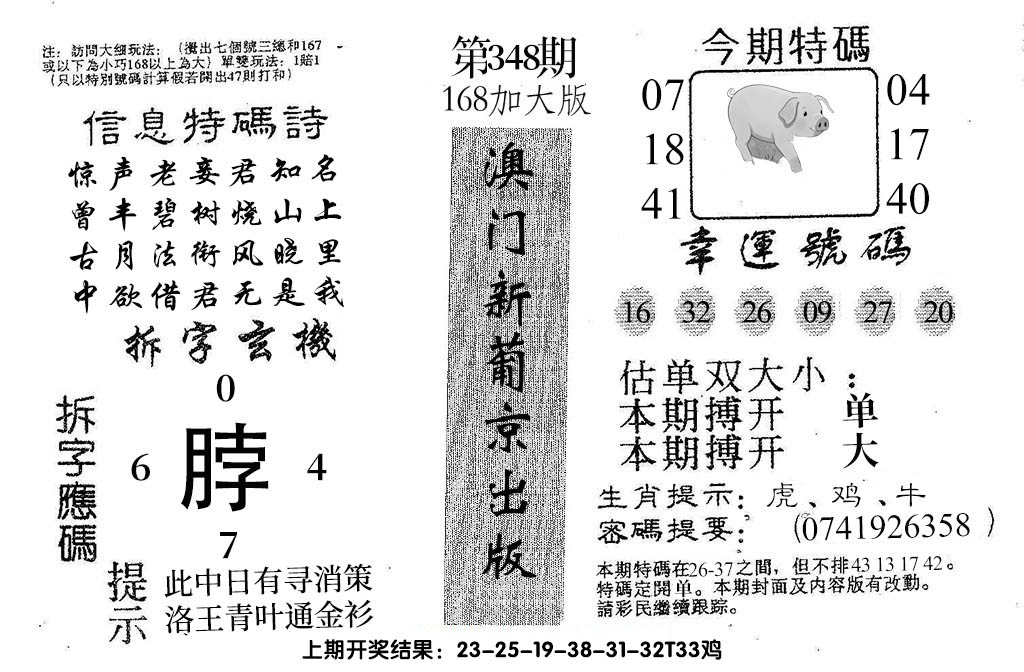 注：訪問大细玩法：（攪出七個號三總和167
或以下為小巧168以上為大）單雙玩法：1賠1
（只以特別號碼計算假若開出47則打和）
信息特碼詩
惊声老妾君知名
曾丰碧树烧山上
古月法衔风晓里
中欲借君无是我
拆字玄機
拆字應碼
0
6 脖 4
7
提示
此中日有寻消策
洛王青叶通金衫
第348期
168加大版
澳门新葡京出版
今期特碼
07 04
18 17
41 40
幸運號碼
16 32 26 09 27 20
估单双大小：
本期搏开 单
本期搏开 大
生肖提示：虎、鸡、牛
密碼提要：（0741926358）
本期特碼在26-37之間，但不排43 13 17 42。
特碼定開单。本期封面及内容版有改動。
請彩民繼續跟踪。
上期开奖结果：23-25-19-38-31-32T33鸡